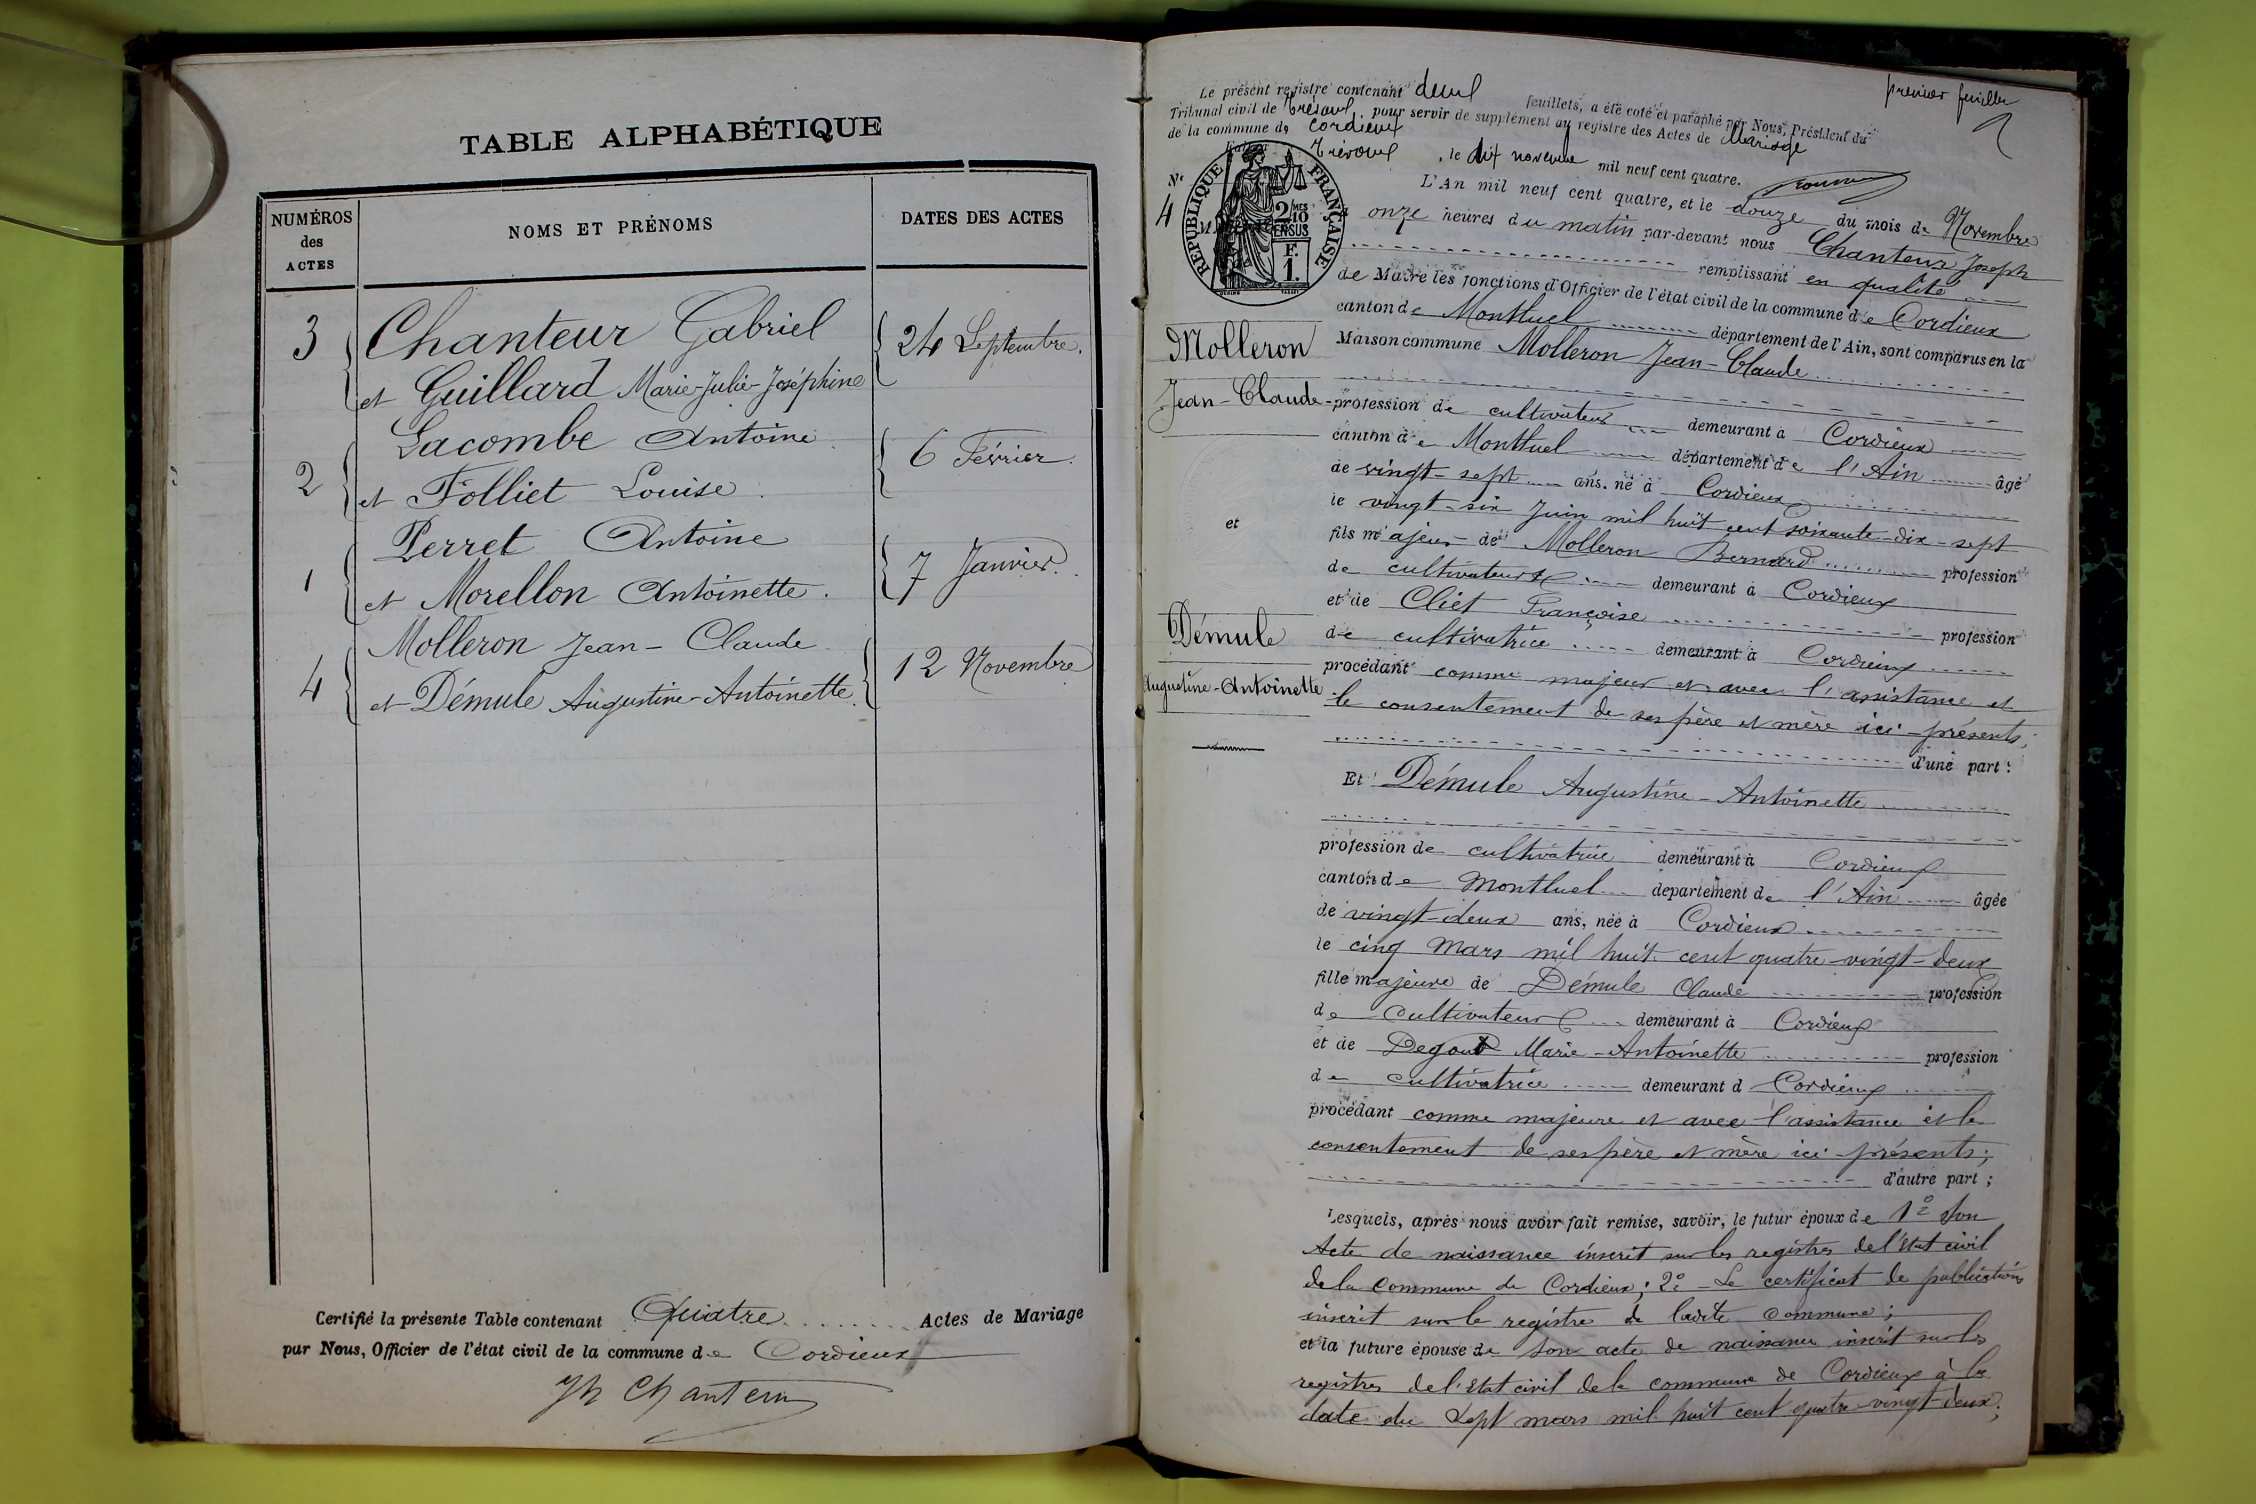 TABLE ALPHABÉTIQUE
NUMÉROS des ACTES
NOMS ET PRÉNOMS
DATES DES ACTES
3 Chanteur Gabriel
et Guillard Marie-Julie-Joséphine
24 Septembre.
2 Lacombe Antoine
et Folliet Louise
6 Février.
1 Perret Antoine
et Morellon Antoinette.
7 Janvier.
4 Molleron Jean-Claude
et Démule Augustine-Antoinette.
12 Novembre
Certifié la présente Table contenant Quatre Actes de Mariage
par Nous, Officier de l'état civil de la commune de Cordieux
Jh Chanteur
premier feuillet
Le présent registre contenant deux feuillets, a été coté et paraphé par Nous, Président du
Tribunal civil de Trévoux, pour servir de supplément au registre des Actes de Mariage
de la commune de Cordieux
Trévoux, le dix novembre mil neuf cent quatre.
RÉPUBLIQUE FRANÇAISE
2/MES 10 EN SUS
F. 1.
No 4
L'An mil neuf cent quatre, et le douze du mois de Novembre
onze heures du matin par-devant nous Chanteur Joseph
remplissant en qualité
de Maire les fonctions d'Officier de l'état civil de la commune de Cordieux
canton de Montluel département de l'Ain, sont comparus en la
Maison commune Molleron Jean-Claude
Molleron
Jean-Claude
et
Démule
Augustine-Antoinette
profession de cultivateur demeurant à Cordieux
canton de Montluel département de l'Ain âgé
de vingt-sept ans. né à Cordieux
le vingt-six Juin mil huit cent soixante-dix-sept
fils majeur de Molleron Bernard profession
de cultivateur demeurant à Cordieux
et de Cliet Françoise profession
de cultivatrice demeurant à Cordieux
procédant comme majeur et avec l'assistance et
le consentement de ses père et mère ici-présents;
d'une part:
Et Démule Augustine-Antoinette
profession de cultivatrice demeurant à Cordieux
canton de Montluel département de l'Ain âgée
de vingt-deux ans, née à Cordieux
le cinq Mars mil huit cent quatre-vingt-deux
fille majeure de Démule Claude profession
de cultivateur demeurant à Cordieux
et de Degout Marie-Antoinette profession
de cultivatrice demeurant à Cordieux
procédant comme majeure et avec l'assistance et le
consentement de ses père et mère ici-présents;
d'autre part;
Lesquels, après nous avoir fait remise, savoir, le futur époux de 1º Son
Acte de naissance inscrit sur les registres de l'Etat civil
de la commune de Cordieux; 2º- Le certificat de publications
inscrit sur le registre de ladite commune;
et la future épouse de son acte de naissance inscrit sur les
registres de l'Etat civil de la commune de Cordieux à la
date du Sept mars mil huit cent quatre-vingt-deux;